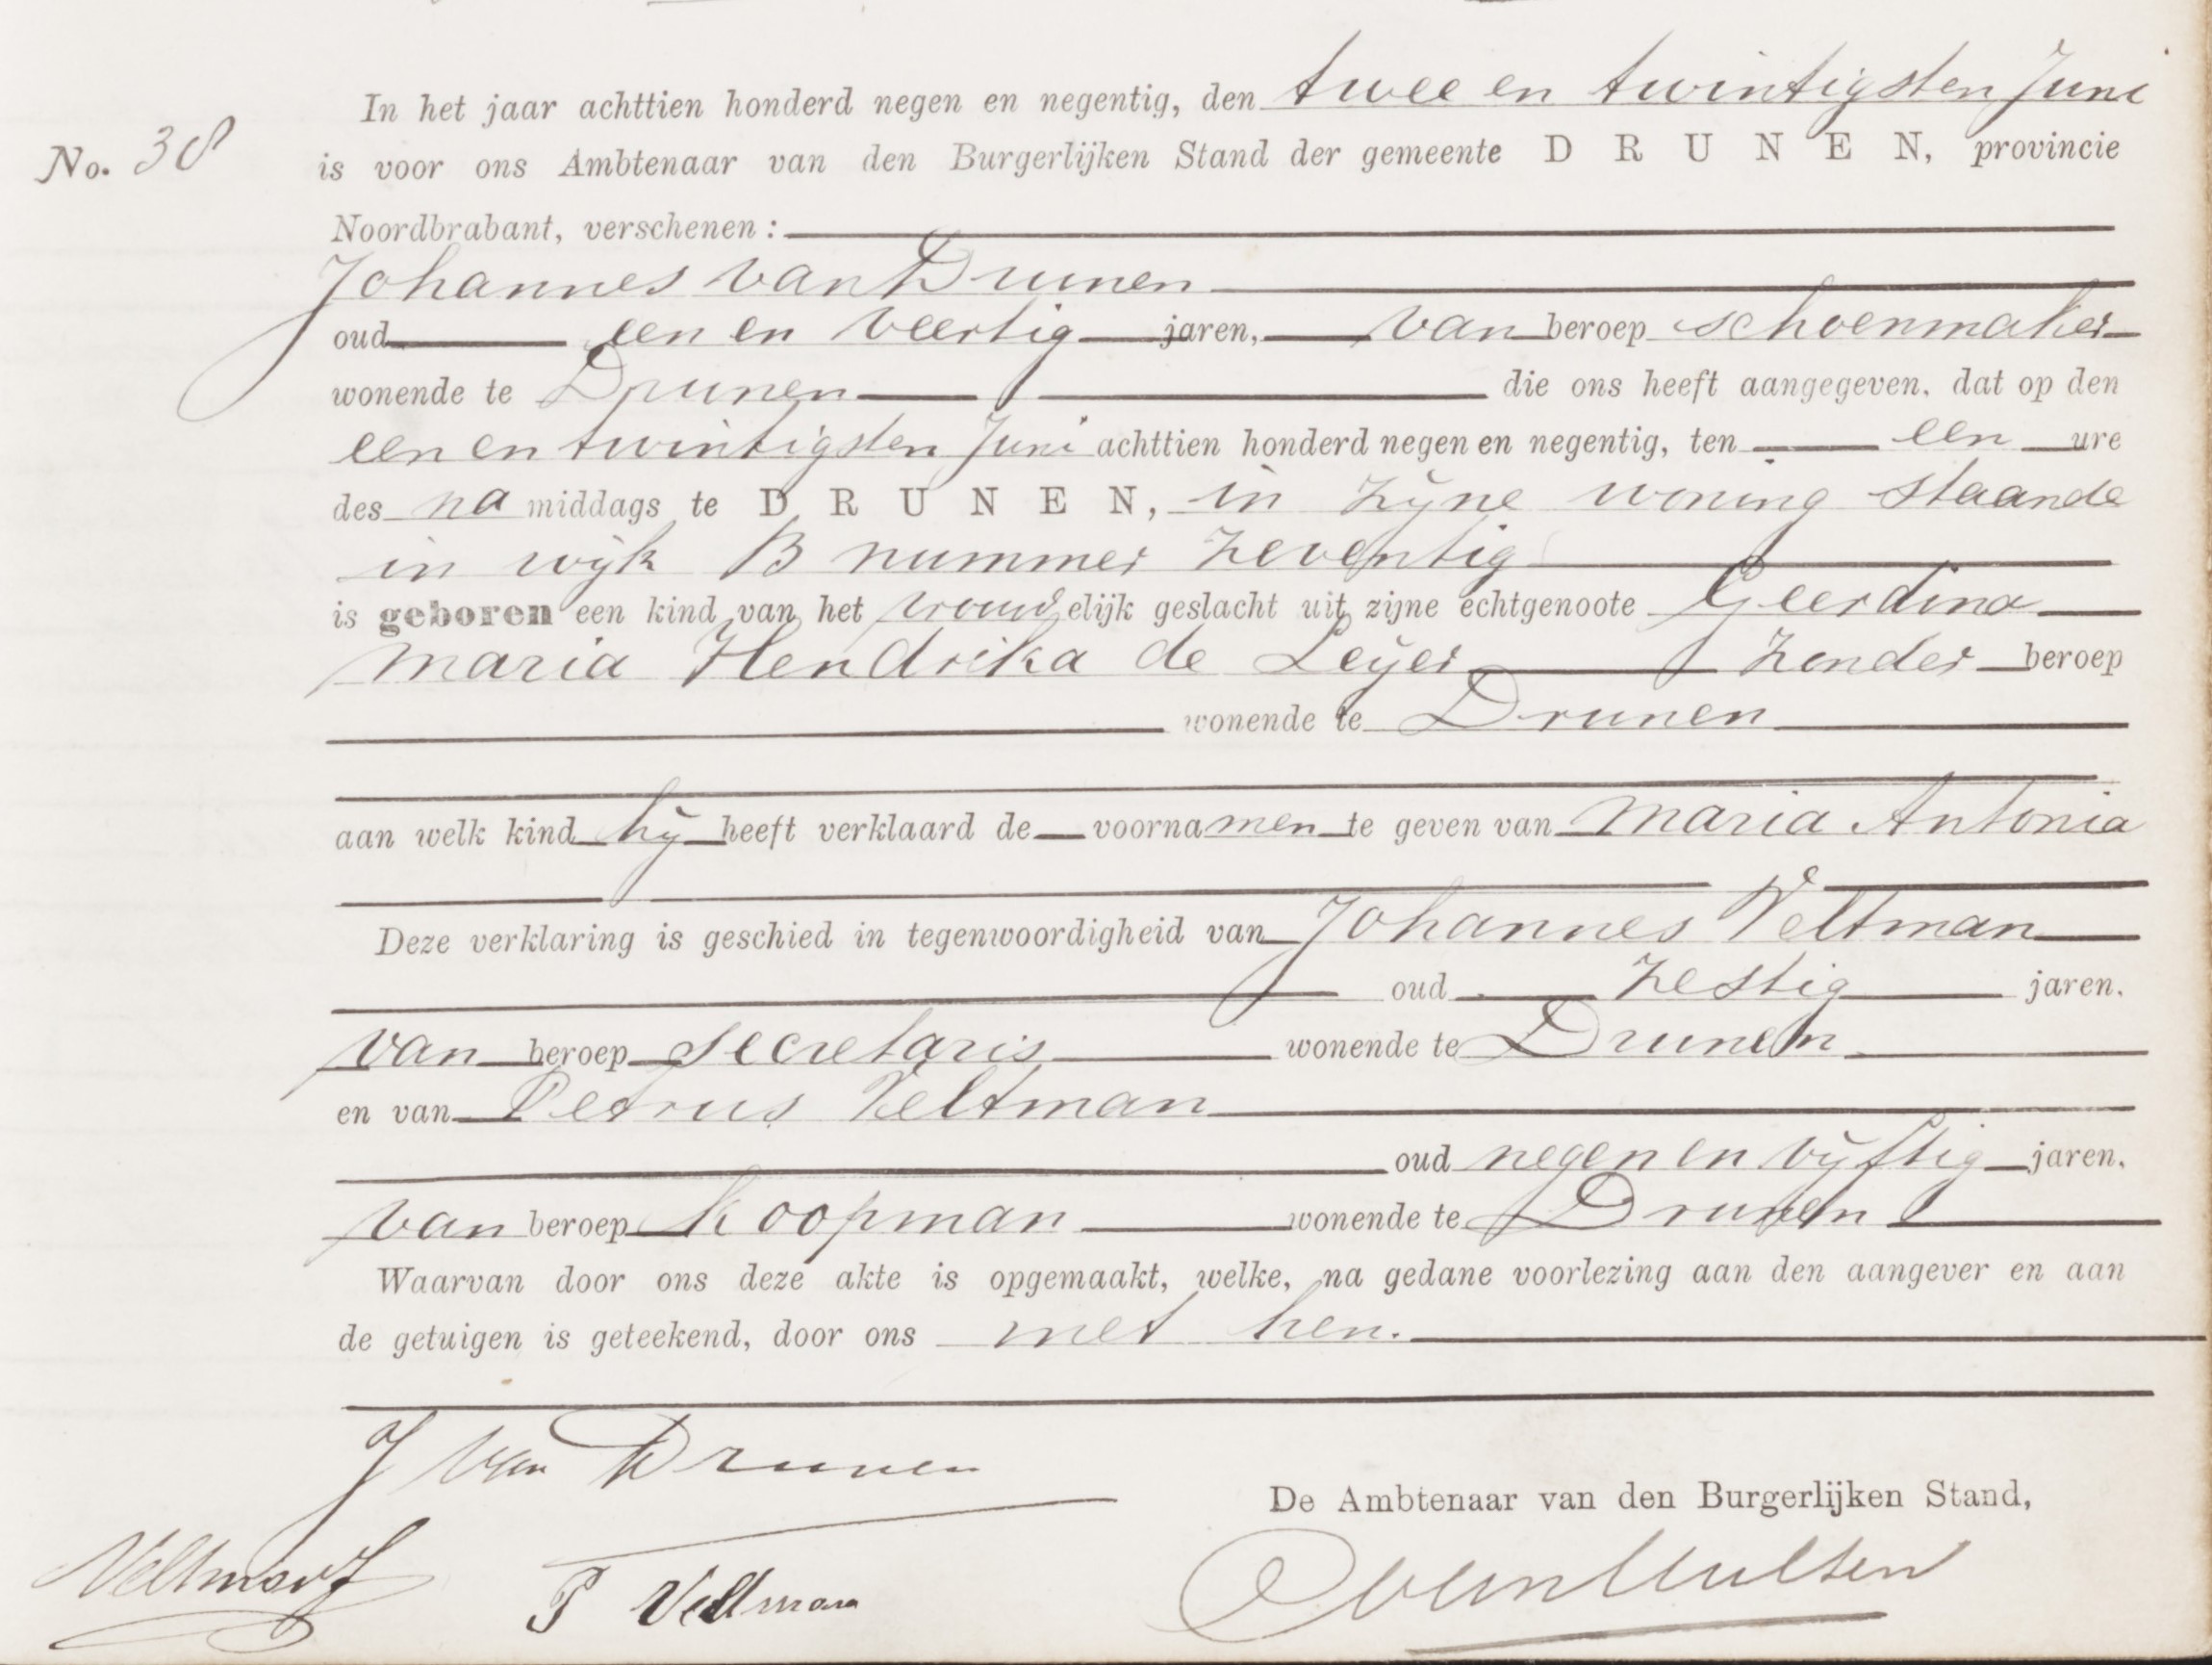 In het jaar achttien honderd negen en negentig, den twee en twintigsten Juni
No. 38
is voor ons Ambtenaar van den Burgerlijken Stand der gemeente DRUNEN, provincie
Noordbrabant, verschenen:
Johannes van Drunen
oud een en veertig jaren, van beroep schoenmaker
wonende te Drunen die ons heeft aangegeven, dat op den
een en twintigsten Juni achttien honderd negen en negentig, ten een ure
des na middags te DRUNEN, in zijne woning staande
in wijk B nummer zeventig
is geboren een kind van het vrouwelijk geslacht uit zijne echtgenoote Geerdina
Maria Hendrika de Leijer zonder beroep
wonende te Drunen
aan welk kind hij heeft verklaard de voornamen te geven van Maria Antonia
Deze verklaring is geschied in tegenwoordigheid van Johannes Veltman
oud zestig jaren.
van beroep secretaris wonende te Drunen
en van Petrus Veltman
oud negen en vijftig jaren,
van beroep koopman wonende te Drunen
Waarvan door ons deze akte is opgemaakt, welke, na gedane voorlezing aan den aangever en aan
de getuigen is geteekend, door ons met hen.
J van Drunen
De Ambtenaar van den Burgerlijken Stand,
P Veltman